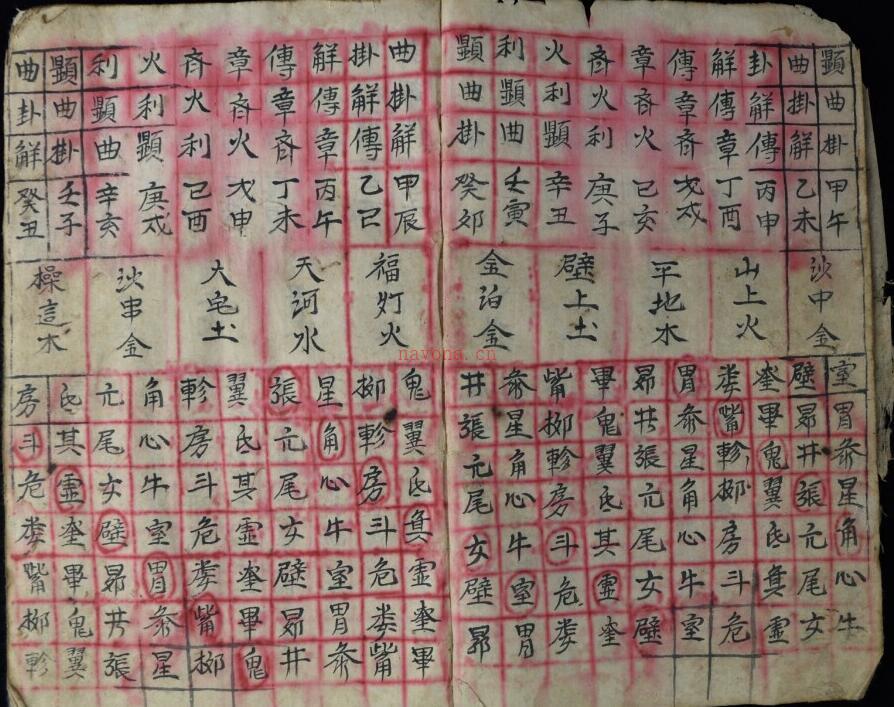 顯曲掛甲午
曲掛解乙未
卦解傳丙申
解傳章丁酉
傳章斉戊戌
章斉火己亥
斉火利庚子
火利顯辛丑
利顯曲壬寅
顯曲卦癸夘
沙中金
山上火
平地木
壁上土
金泊金
室胃参星角心牛
壁昴井張亢尾女
奎畢鬼翼氐其虚
娄觜軫柳房斗危
胃参星角心牛室
昴井張亢尾女壁
畢鬼翼氐其虚奎
觜柳軫房斗危娄
参星角心牛室胃
井張亢尾女壁昴
曲掛解甲辰
掛解傳乙巳
解傳章丙午
傳章斉丁未
章斉火戊申
斉火利己酉
火利顯庚戌
利顯曲辛亥
顯曲掛壬子
曲卦解癸丑
福灯火
天河水
大宅土
沙串金
操這木
鬼翼氐其虚奎畢
柳軫房斗危娄觜
星角心牛室胃参
張亢尾女壁昴井
翼氐其虚奎畢鬼
軫房斗危娄觜柳
角心牛室胃参星
亢尾女壁昴井張
氐其虚奎畢鬼翼
房斗危娄觜柳軫
navona.cn